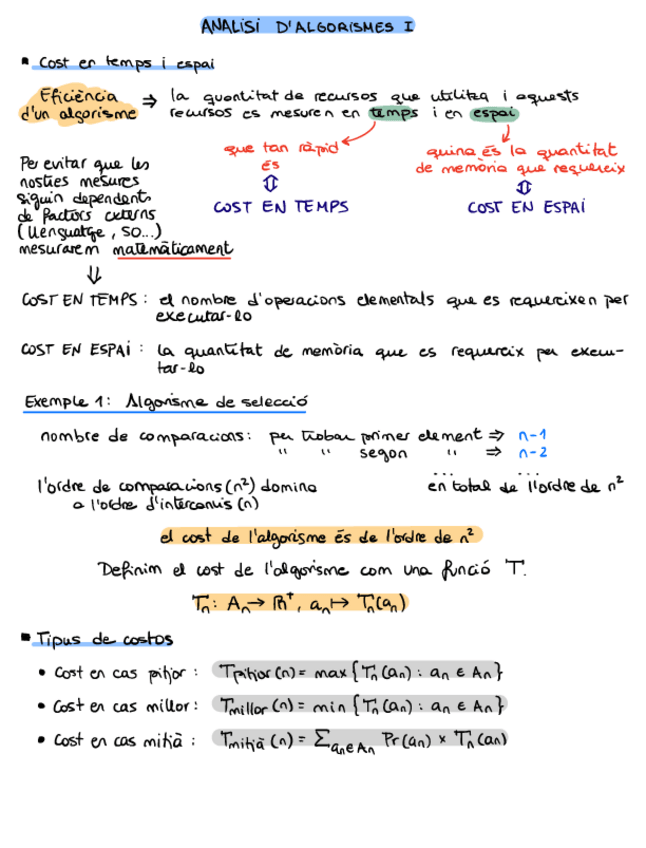 ANÀLISI D'ALGORISMES I
Cost en temps i espai
Eficiència d'un algorisme ⇒ la quantitat de recursos que utilitza i aquests
recursos es mesuren en temps i en espai
que tan ràpid
és
⇕
COST EN TEMPS
quina és la quantitat
de memòria que requereix
⇕
COST EN ESPAI
Per evitar que les
nostres mesures
siguin dependents
de factors externs
(llenguatge, SO...)
mesurarem matemàticament
⇓
COST EN TEMPS: el nombre d'operacions elementals que es requereixen per
executar-lo
COST EN ESPAI: la quantitat de memòria que es requereix per execu-
tar-lo
Exemple 1: Algorisme de selecció
nombre de comparacions: per trobar primer element ⇒ n-1
" " segon " ⇒ n-2
... ...
l'ordre de comparacions (n²) domina
a l'ordre d'intercanvis (n)
en total de l'ordre de n²
el cost de l'algorisme és de l'ordre de n²
Definim el cost de l'algorisme com una funció T.
Tₙ: Aₙ → ℝ⁺, aₙ ↦ Tₙ(aₙ)
Tipus de costos
• Cost en cas pitjor: Tpitjor(n) = max{Tₙ(aₙ): aₙ ∈ Aₙ}
• Cost en cas millor: Tmillor(n) = min{Tₙ(aₙ): aₙ ∈ Aₙ}
• Cost en cas mitjà: Tmitjà(n) = Σaₙ∈Aₙ Pr(aₙ) × Tₙ(aₙ)